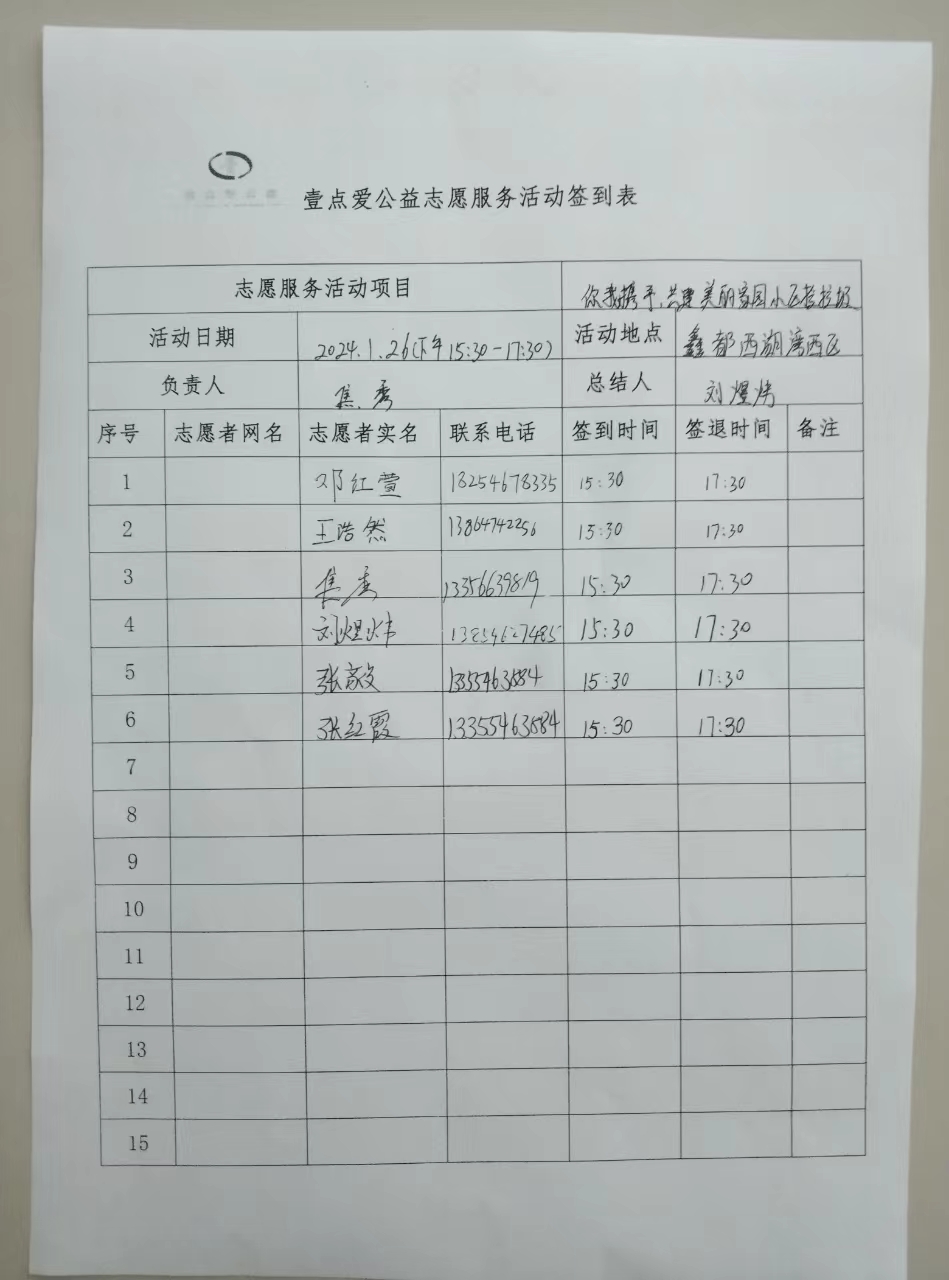 壹点爱公益志愿服务活动签到表
志愿服务活动项目 你我携手,共建美丽家园小区捡垃圾
活动日期 2024.1.26(下午15:30-17:30) 活动地点 鑫都西湖湾西区
负责人 焦秀 总结人 刘煜炜
序号 志愿者网名 志愿者实名 联系电话 签到时间 签退时间 备注
1 邓红萱 18254678335 15:30 17:30
2 王浩然 13864742256 15:30 17:30
3 焦秀 13356639819 15:30 17:30
4 刘煜炜 13854627485 15:30 17:30
5 张敬文 15:30 17:30
6 张红霞 13355463884 15:30 17:30
7
8
9
10
11
12
13
14
15